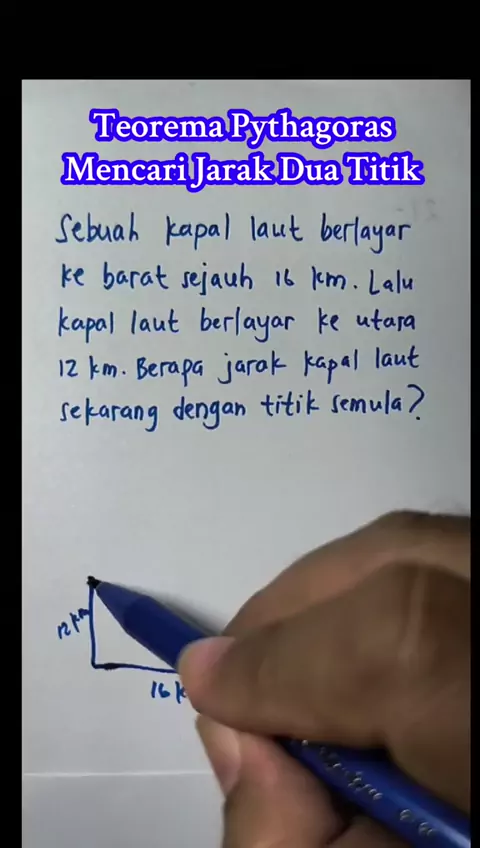 Teorema Pythagoras
Mencari Jarak Dua Titik
Sebuah kapal laut berlayar
ke barat sejauh 16 km. Lalu
kapal laut berlayar ke utara
12 km. Berapa jarak kapal laut
sekarang dengan titik semula?
12 km
16